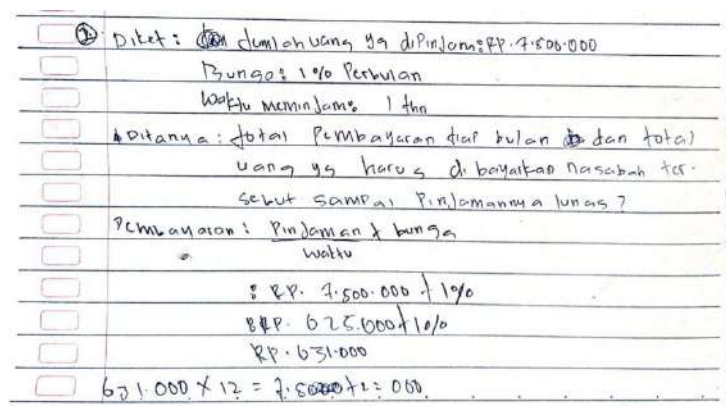 ② Diket : Jumlah uang yg dipinjam : RP. 7.500.000
Bunga : 1% Perbulan
Waktu meminjam : 1 thn
Ditanya : total Pembayaran tiap bulan dan total
uang yg harus dibayarkan nasabah ter-
sebut sampai Pinjamannya lunas ?
Pembayaran : Pinjaman + bunga
waktu
: RP. 7.500.000 + 1%
RP. 625.000 + 1%
RP. 631.000
631.000 X 12 =